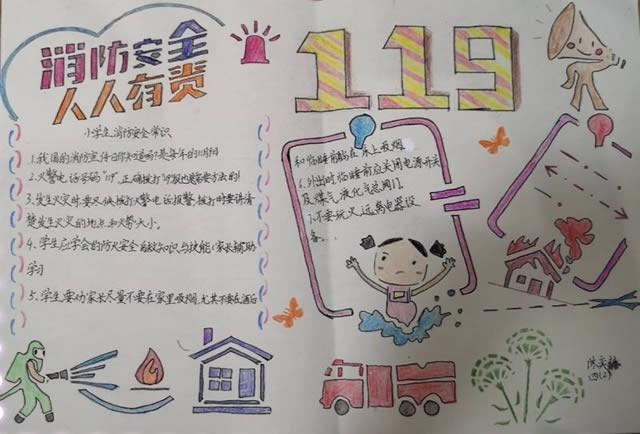 消防安全
人人有责
119
小学生消防安全常识
1.我国的消防宣传日和
2.火警电话号码"119",正确拨打
3.发生火灾时要尽快拨打火警电话报警,拨打时要讲清
楚发生火灾的地点和火势大小。
4.学生应学会的防火安全知识与技能(家长辅助
学习
5.学生要劝家长尽量不要在家里吸烟,尤其不要在酒后
和临睡前躺在床上吸烟
6.外出时临睡前应关闭电源开关
及煤气液化气阀门。
7.不要玩火远离电器设
备...